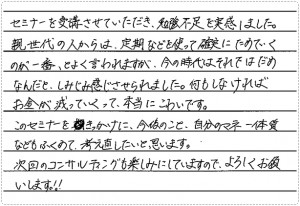 セミナーを受講させていただき、知識不足を実感しました。
親世代の人からは、定期などを使って確実にためていく
のが一番、とよく言われますが、今の時代はそれではだめ
なんだと、しみじみ感じさせられました。何もしなければ
お金が減っていくって、本当にこわいです。
このセミナーをきっかけに、今後のこと、自分のマネー体質
などもふくめて、考え直したいと思います。
次回のコンサルティングも楽しみにしていますので、よろしくお願
いします!!